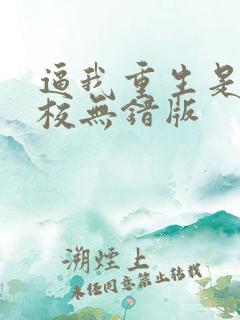 逼我重生是
校無錯版
溯煙上
未经同意禁止转载